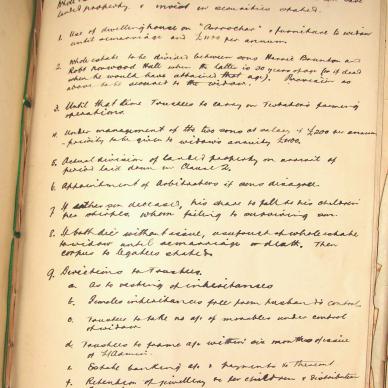 landed property & invest in securities stated.
1. Use of dwelling house on "Arrochar" & furniture to widow
until remarriage and £1100 per annum.
2. Whole estate to be divided between sons Harrie Brandon and
Robt Norwood Hall when the latter is 30 years of age (or if dead
when he would have attained that age). Provision as
above to be secured to the widow.
3. Until that time Trustees to carry on Testator's farming
operations.
4. Under management of the two sons at salary of £200 per annum
- priority to be given to widow's annuity £1100.
5. Actual division of landed property on arrival of
period laid down in Clause 2.
6. Appointment of Arbitrators if sons disagree.
7. If either son deceased, his share to fall to his children
per stirpes, whom failing to surviving son.
8. If both die without issue, usufruct of whole estate
to widow until remarriage or death. Then
corpus to legatees stated.
9. Directions to Trustees.
a. As to vesting of inheritances
b. Females inheritances free from husband's control
c. Trustees to take no a/c of movables under control
of widow
d. Trustees to frame a/cs within six months of issue
of L/Admin.
e. Estate banking a/c & payments to
f. Retention of jewellery to per children & distribution